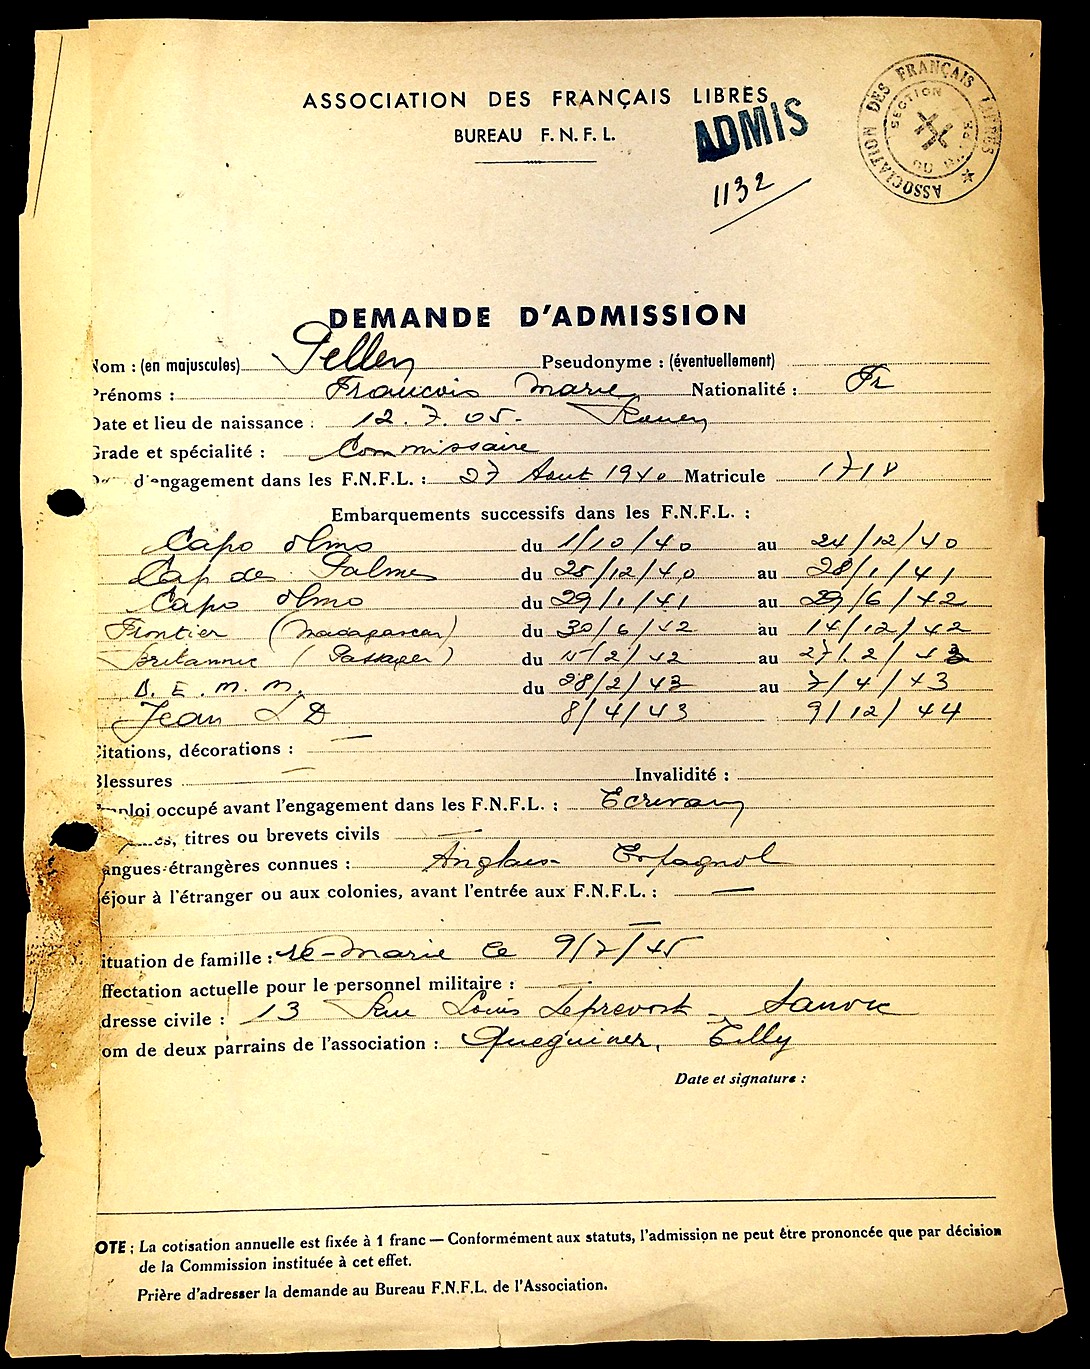 ASSOCIATION DES FRANÇAIS LIBRES
BUREAU F.N.F.L.
ADMIS
1132
ASSOCIATION DES FRANÇAIS LIBRES ★
SECTION DU
DEMANDE D'ADMISSION
Nom : (en majuscules) Pellen Pseudonyme : (éventuellement)
Prénoms : Francois Marie Nationalité : Fr
Date et lieu de naissance : 12.7.05. Rouen
Grade et spécialité : Commissaire
d'engagement dans les F.N.F.L. : 27 Aout 1940 Matricule 1718
Embarquements successifs dans les F.N.F.L. :
Capo olmo du 1/10/40 au 24/12/40
Cap des Palmes du 25/12/40 au 28/1/41
Capo olmo du 29/1/41 au 29/6/42
Frontier (Madagascar) du 30/6/42 au 14/12/42
Britannic (Passager) du 15/2/42 au 27/2/43
D.E.M.M. du 28/2/43 au 7/4/43
Jean L D 8/4/43 9/12/44
Citations, décorations : —
Blessures — Invalidité :
Emploi occupé avant l'engagement dans les F.N.F.L. : Ecrivain
es, titres ou brevets civils —
angues étrangères connues : Anglais Espagnol
éjour à l'étranger ou aux colonies, avant l'entrée aux F.N.F.L. : —
—
ituation de famille : re-marie le 9/7/45
ffectation actuelle pour le personnel militaire :
dresse civile : 13 Rue Louis Leprevost - Sanvic
om de deux parrains de l'association : Queguiner, Tilly
Date et signature :
OTE : La cotisation annuelle est fixée à 1 franc — Conformément aux statuts, l'admission ne peut être prononcée que par décision
de la Commission instituée à cet effet.
Prière d'adresser la demande au Bureau F.N.F.L. de l'Association.